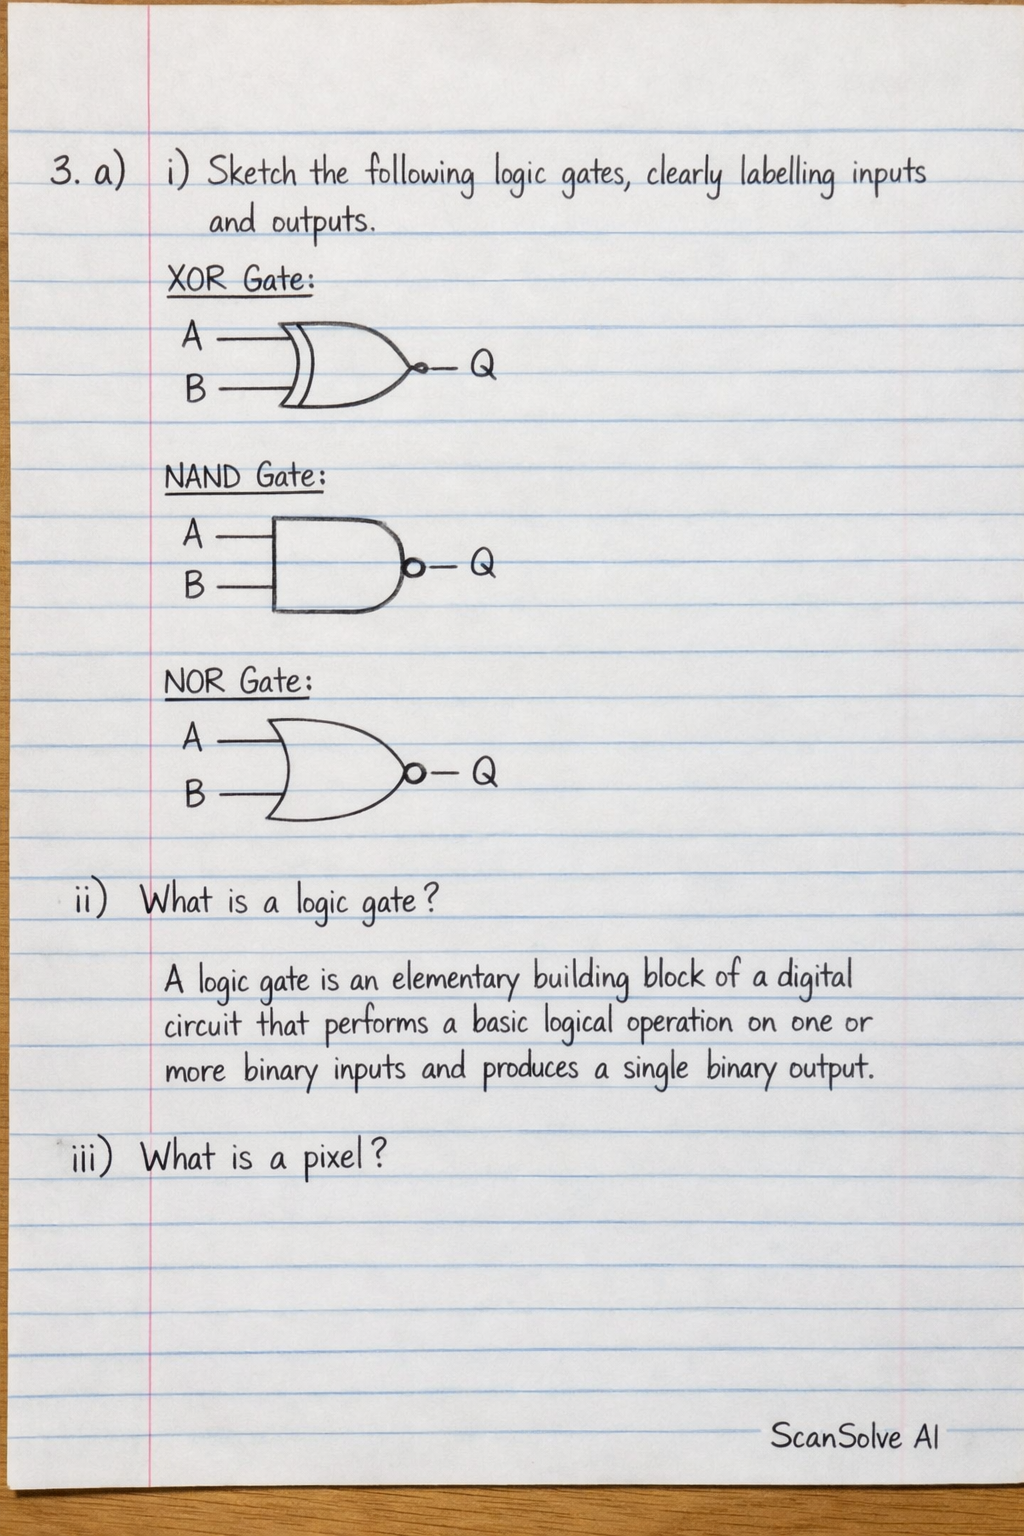 3. a) i) Sketch the following logic gates, clearly labelling inputs
and outputs.
XOR Gate:
A
B
Q
NAND Gate:
A
B
Q
NOR Gate:
A
B
Q
ii) What is a logic gate?
A logic gate is an elementary building block of a digital
circuit that performs a basic logical operation on one or
more binary inputs and produces a single binary output.
iii) What is a pixel?
ScanSolve AI